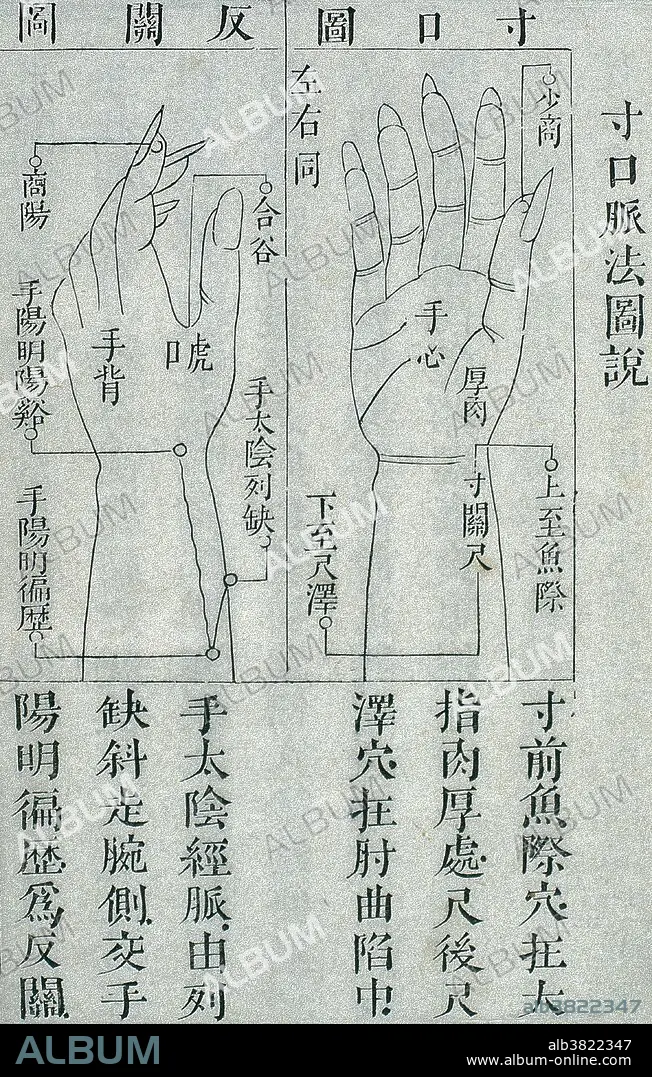 寸口脈法圖說
寸口圖
少商
左右同
手心
厚肉
寸關尺
上至魚際
下至尺澤
寸前魚際穴在大
指肉厚處尺後尺
澤穴在肘曲陷中
反關圖
合谷
商陽
虎口
手背
手太陰列缺
手陽明陽谿
手陽明徧歷
手太陰經脈由列
缺斜走腕側交手
陽明徧歷爲反關
ALBUM
alb3822347
ALBUM
alb3822347
www.album-online.com